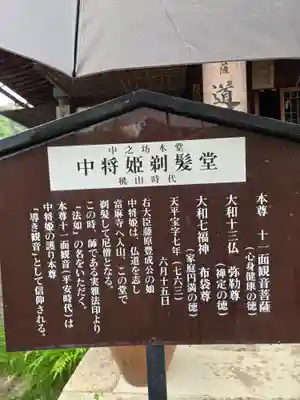 薩
道
中之坊本堂
中将姫剃髪堂
桃山時代
本尊 十一面観音菩薩
(心身健康の徳)
大和十三仏 弥勒尊
(禅定の徳)
大和七福神 布袋尊
(家庭円満の徳)
天平宝字七年(七六三)
六月十五日
右大臣藤原豊成公の娘
中将姫は、仏道を志し
當麻寺へ入山。この堂で
剃髪して尼僧となる。
この時、師である実雅法印より
「法如」の名をいただく。
本尊十一面観音(平安時代)は
中将姫の護り本尊
「導き観音」として信仰される。